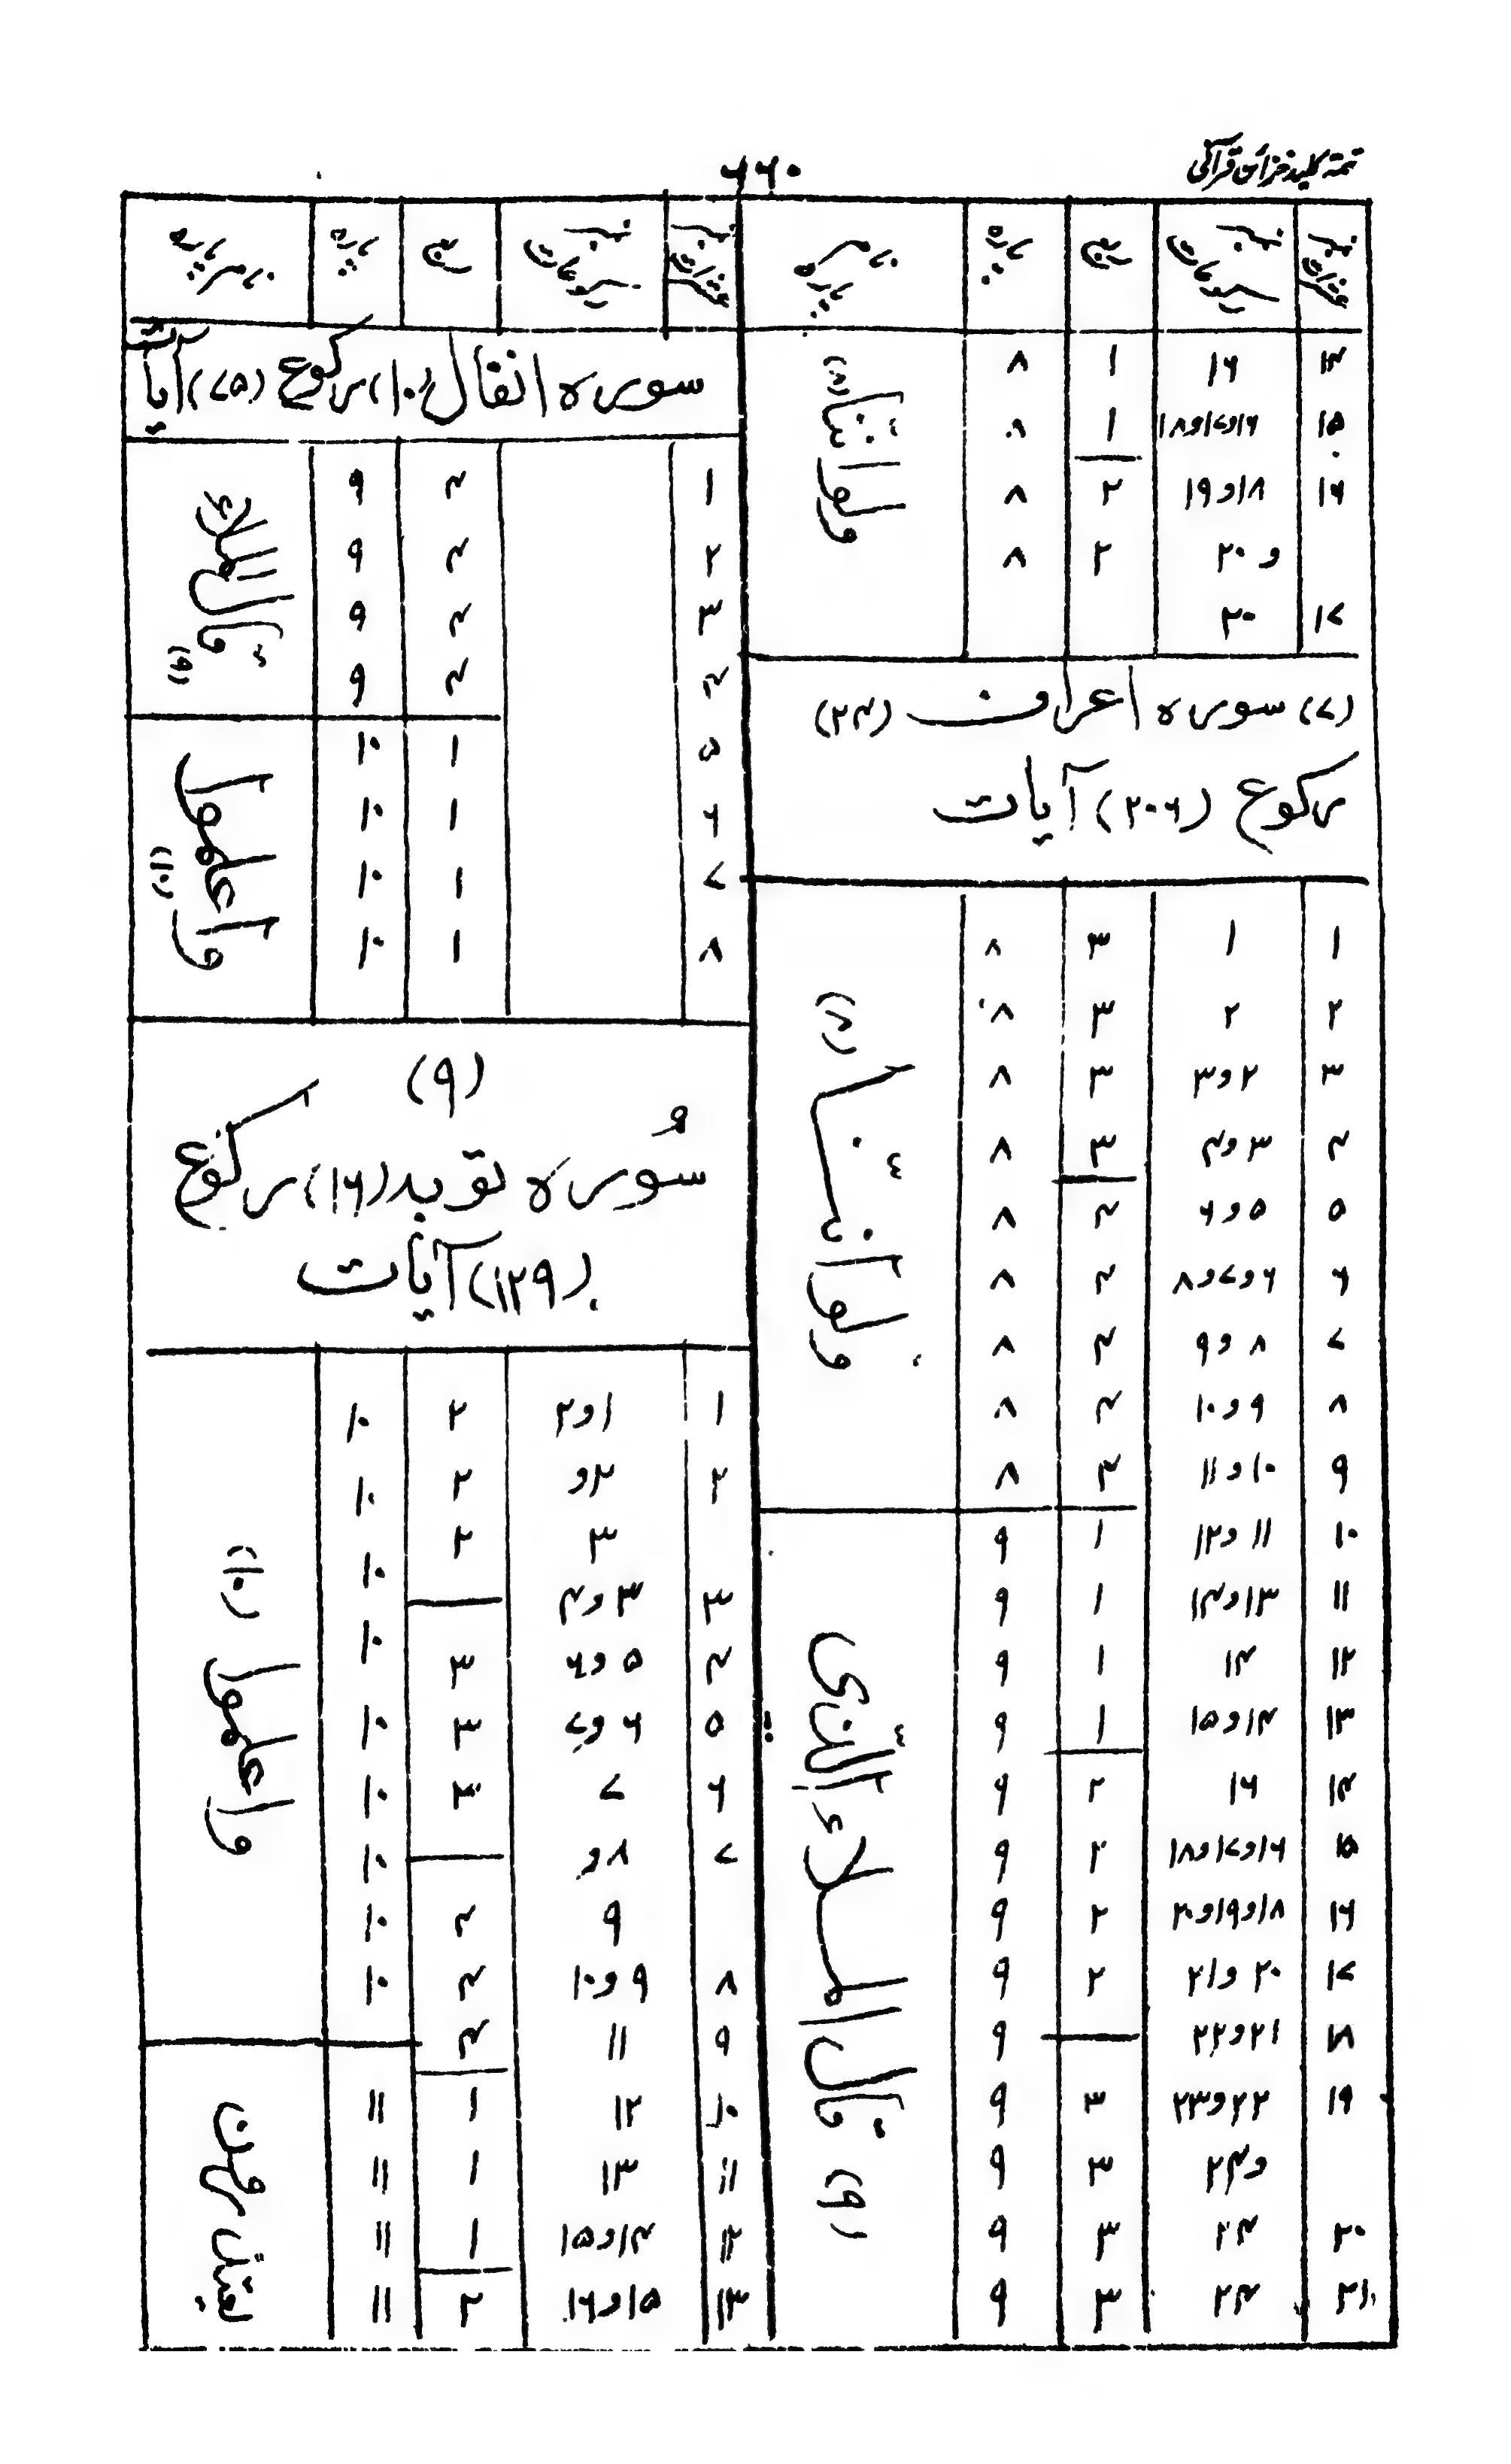 تتمۃ کلید خزائن قرآنی
۶۶۰
نمبر عشرات نمبر رکوعات ربع پارہ نام پارہ
۱۴ ۱۶ ۱ ۸ ولواننا (۸)
۱۵ ۱۶و۱۷و۱۸ ۱ ۸
۱۶ ۱۸و۱۹ ۲ ۸
و ۲۰ ۲ ۸
۱۷ ۲۰
(۷) سورہ اعراف (۲۴)
رکوع (۲۰۶) آیات
۱ ۱ ۳ ۸ ولواننا (۸)
۲ ۲ ۳ ۸
۳ ۲و۳ ۳ ۸
۴ ۳و۴ ۳ ۸
۵ ۵و۶ ۴ ۸
۶ ۶و۷و۸ ۴ ۸
۷ ۸و۹ ۴ ۸
۸ ۹و۱۰ ۴ ۸
۹ ۱۰و۱۱ ۴ ۸
۱۰ ۱۱و۱۲ ۱ ۹ قال الملاء الذی (۹)
۱۱ ۱۳و۱۴ ۱ ۹
۱۲ ۱۴ ۱ ۹
۱۳ ۱۴و۱۵ ۱ ۹
۱۴ ۱۶ ۲ ۹
۱۵ ۱۶و۱۷و۱۸ ۲ ۹
۱۶ ۱۸و۱۹و۲۰ ۲ ۹
۱۷ ۲۰و۲۱ ۲ ۹
۱۸ ۲۱و۲۲ ۹
۱۹ ۲۲و۲۳ ۳ ۹
و۲۴ ۳ ۹
۲۰ ۲۴ ۳ ۹
۲۱ ۲۴ ۳ ۹
نمبر عشرات نمبر رکوعات ربع پارہ نام پارہ
سورہ انفال (۱۰) رکوع (۷۵) آیات
۱ ۴ ۹ قال الملاء (۹)
۲ ۴ ۹
۳ ۴ ۹
۴ ۴ ۹
۵ ۱ ۱۰ واعلموا (۱۰)
۶ ۱ ۱۰
۷ ۱ ۱۰
۸ ۱ ۱۰
(۹)
سُورہ توبہ (۱۶) رکوع
(۱۲۹) آیات
۱ ۱و۲ ۲ ۱۰ واعلموا (۱۰)
۲ ۲و ۲ ۱۰
۳ ۲ ۱۰
۳ ۳و۴ ۱۰
۴ ۵و۶ ۳
۵ ۶و۷ ۳ ۱۰
۶ ۷ ۳ ۱۰
۷ ۸و ۱۰
۹ ۴ ۱۰
۸ ۹و۱۰ ۴ ۱۰
۹ ۱۱ ۴
۱۰ ۱۲ ۱ ۱۱ یعتذرون
۱۱ ۱۳ ۱ ۱۱
۱۲ ۱۴و۱۵ ۱ ۱۱
۱۳ ۱۵و۱۶ ۲ ۱۱